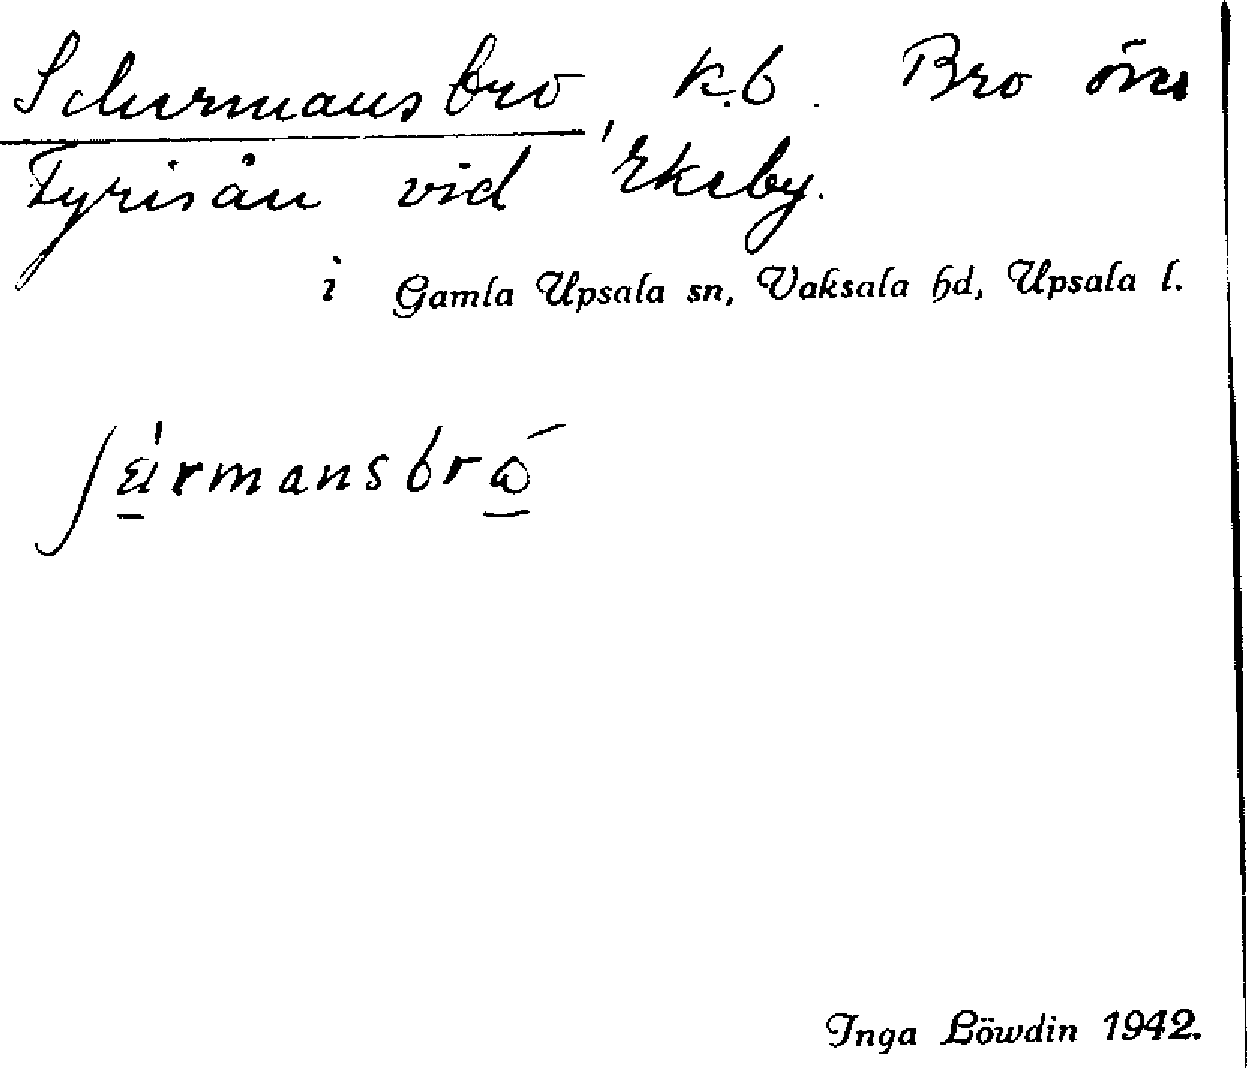 Schurmansbro, k.b. Bro över
Fyrisån vid Ekeby.
i Gamla Upsala sn, Vaksala hd, Upsala l.
Inga Löwdin 1942.